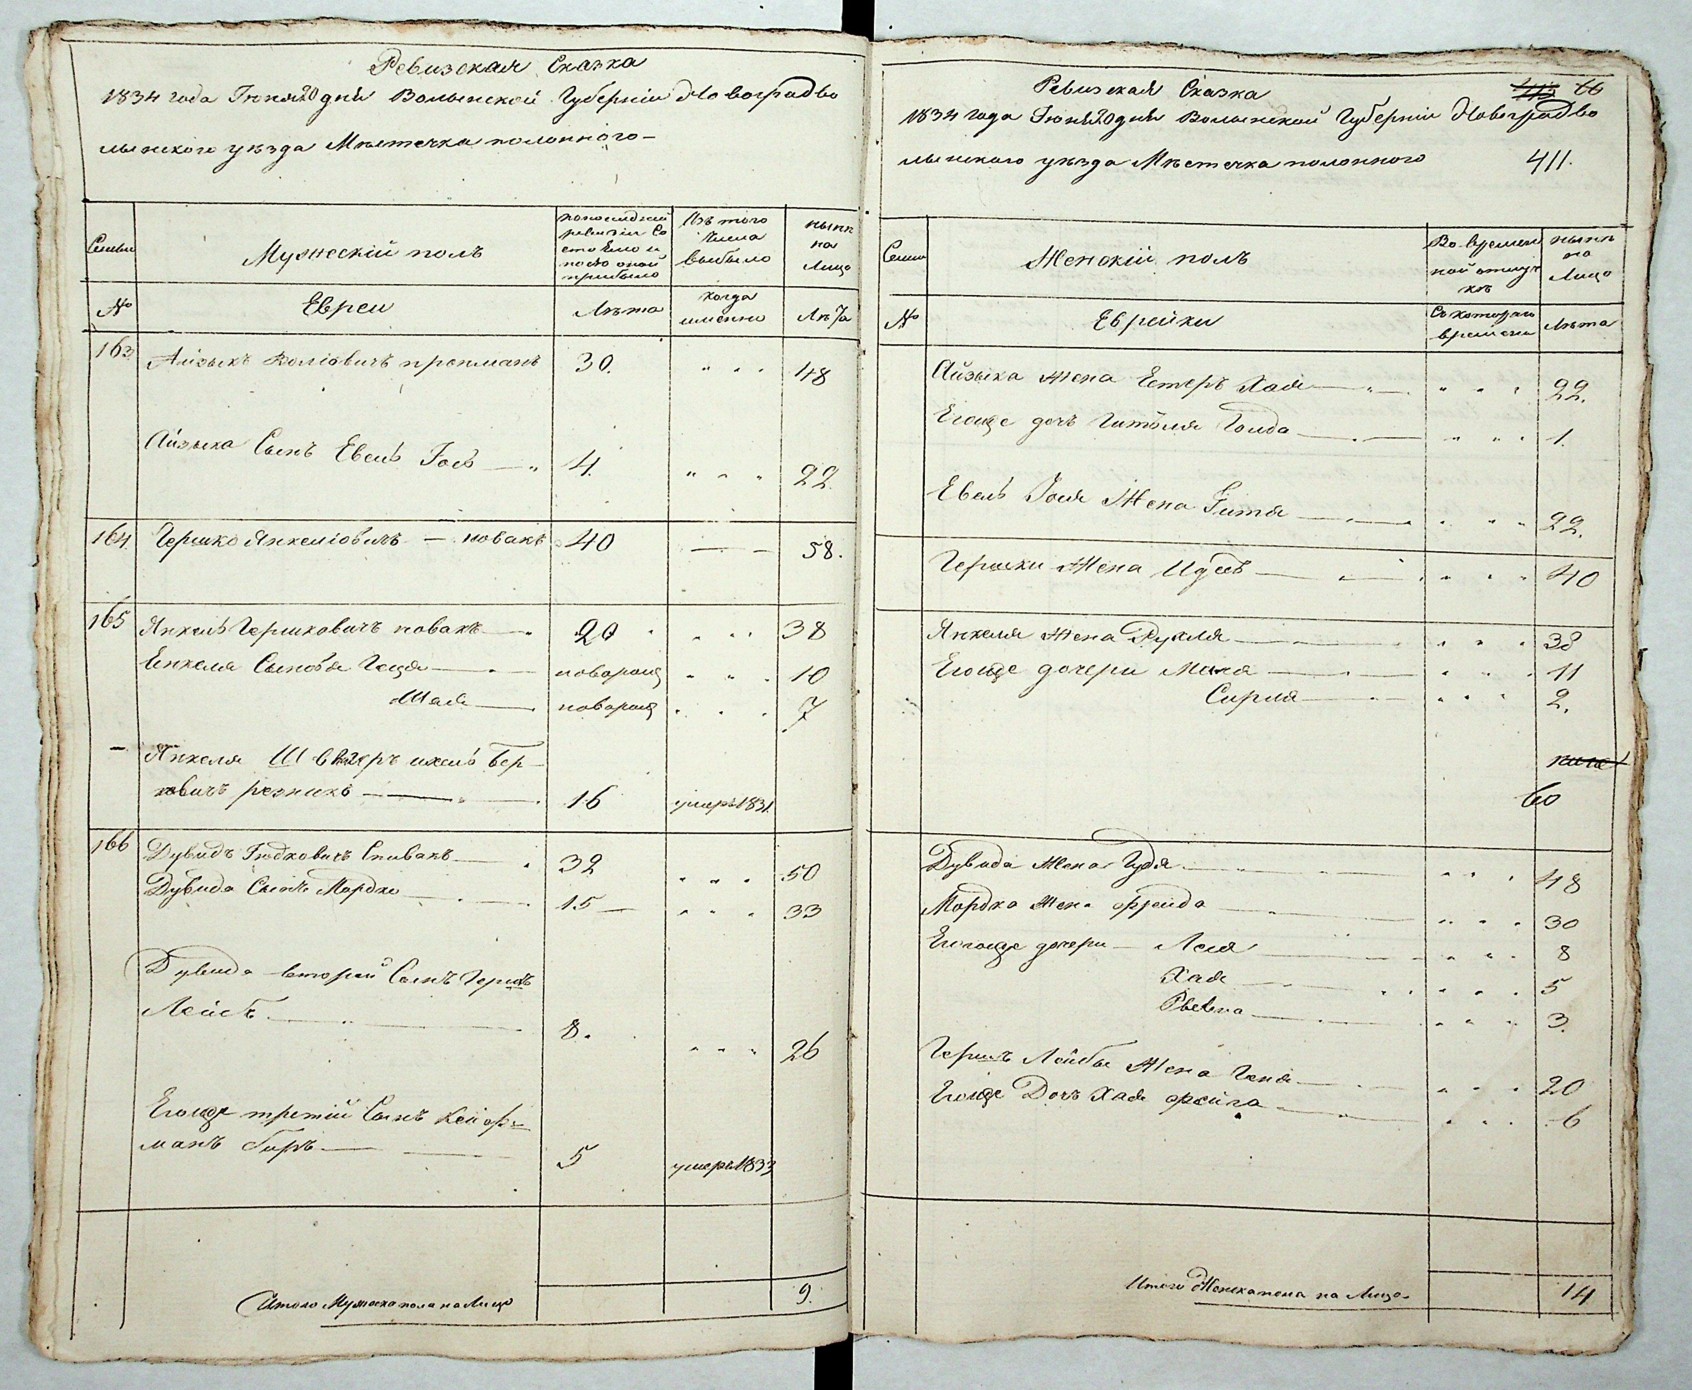 Ревизская Сказка
1834 года Іюня 20 дня Волынской Губерніи Новоградво
лынского уѣзда Мѣстечка полонного
Семьи
Мужескій полъ
по последней
ревизіи Со
стояло и
после оной
прибыло
Изъ того
числа
выбыло
нынѣ
на
Лицо
№
Евреи
Лѣта
когда
именно
Лѣта
163
Айзыкъ Волїовичъ 30. " " " 48
Айзыка Сынъ Евель Іосъ 4. " " " 22
164 Гершко Янкеліовичъ — новакъ 40 — — 58.
165 Янкель Гершковичъ новакъ 20 " " " 38
Янкеля Сыновья новорощ " " " 10
Шая новорощ " " " 7
Янкеля Швагеръ ихель Бер
ковичъ резникъ 16 умеръ 1831
166 Дувидъ Юдковичъ Спивакъ 32 " " " 50
Дувида Сынъ Мордко 15 — " " " 33
Дувида второй Сынъ Гершъ
Лейбъ 8. " " " 26
Егоже третій Сынъ
манъ Беръ 5 умеръ 1833
Итого Мужеска пола на Лицо 9.
Ревизская Сказка
66
1834 года Іюня 20 дня Волынской Губерніи Новоградво
лынского уѣзда Мѣстечка полонного 411.
Семьи
Женскій полъ
Во времен
ной отлуч
кѣ
нынѣ
на
Лицо
№
Еврейки
Съ котораго
времени
Лѣта
Айзыка жена Естеръ Хая " " " 22.
Егоже дочь Голда " " " 1.
Евель Іося Жена Гитя " " " 22.
Гершки Жена " " " 40
Янкеля жена Рухля " " " 38
Егоже дочери " " " 11
Сирля " " " 2.
60
Дувида Жена " " " 48
Мордка Жена Фрейда " " " 30
Егоже дочери — Лея " " " 8
Хая " " " 5
Ривка " " " 3.
Гершъ Лейбы Жена Геня " " " 20
Егоже Дочь Хая Фейга " " " 6
Итого Женска пола на Лицо 14